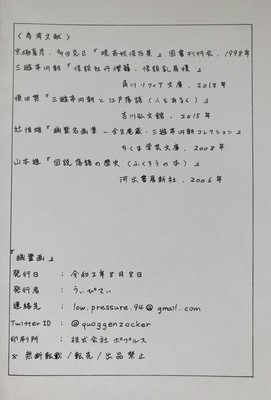 〈参考文献〉
京極夏彦、多田克己『暁斎妖怪百景』国書刊行会、1998年
三遊亭円朝『怪談牡丹燈籠・怪談乳房榎』
角川ソフィア文庫、2018年
須田努『三遊亭円朝と江戸落語(人をあるく)』
吉川弘文館、2015年
辻惟雄『幽霊名画集−全生庵蔵・三遊亭円朝コレクション』
ちくま学芸文庫、2008年
山本進『図説落語の歴史(ふくろうの本)』
河出書房新社、2006年
『幽霊画』
発行日 : 令和2年8月8日
発行者 : うぃぴてぃ
連絡先 : low.pressure.94@gmail.com
Twitter ID : @quoggenzocker
印刷所 : 株式会社 ポプルス
※ 無断転載/転売/出品禁止